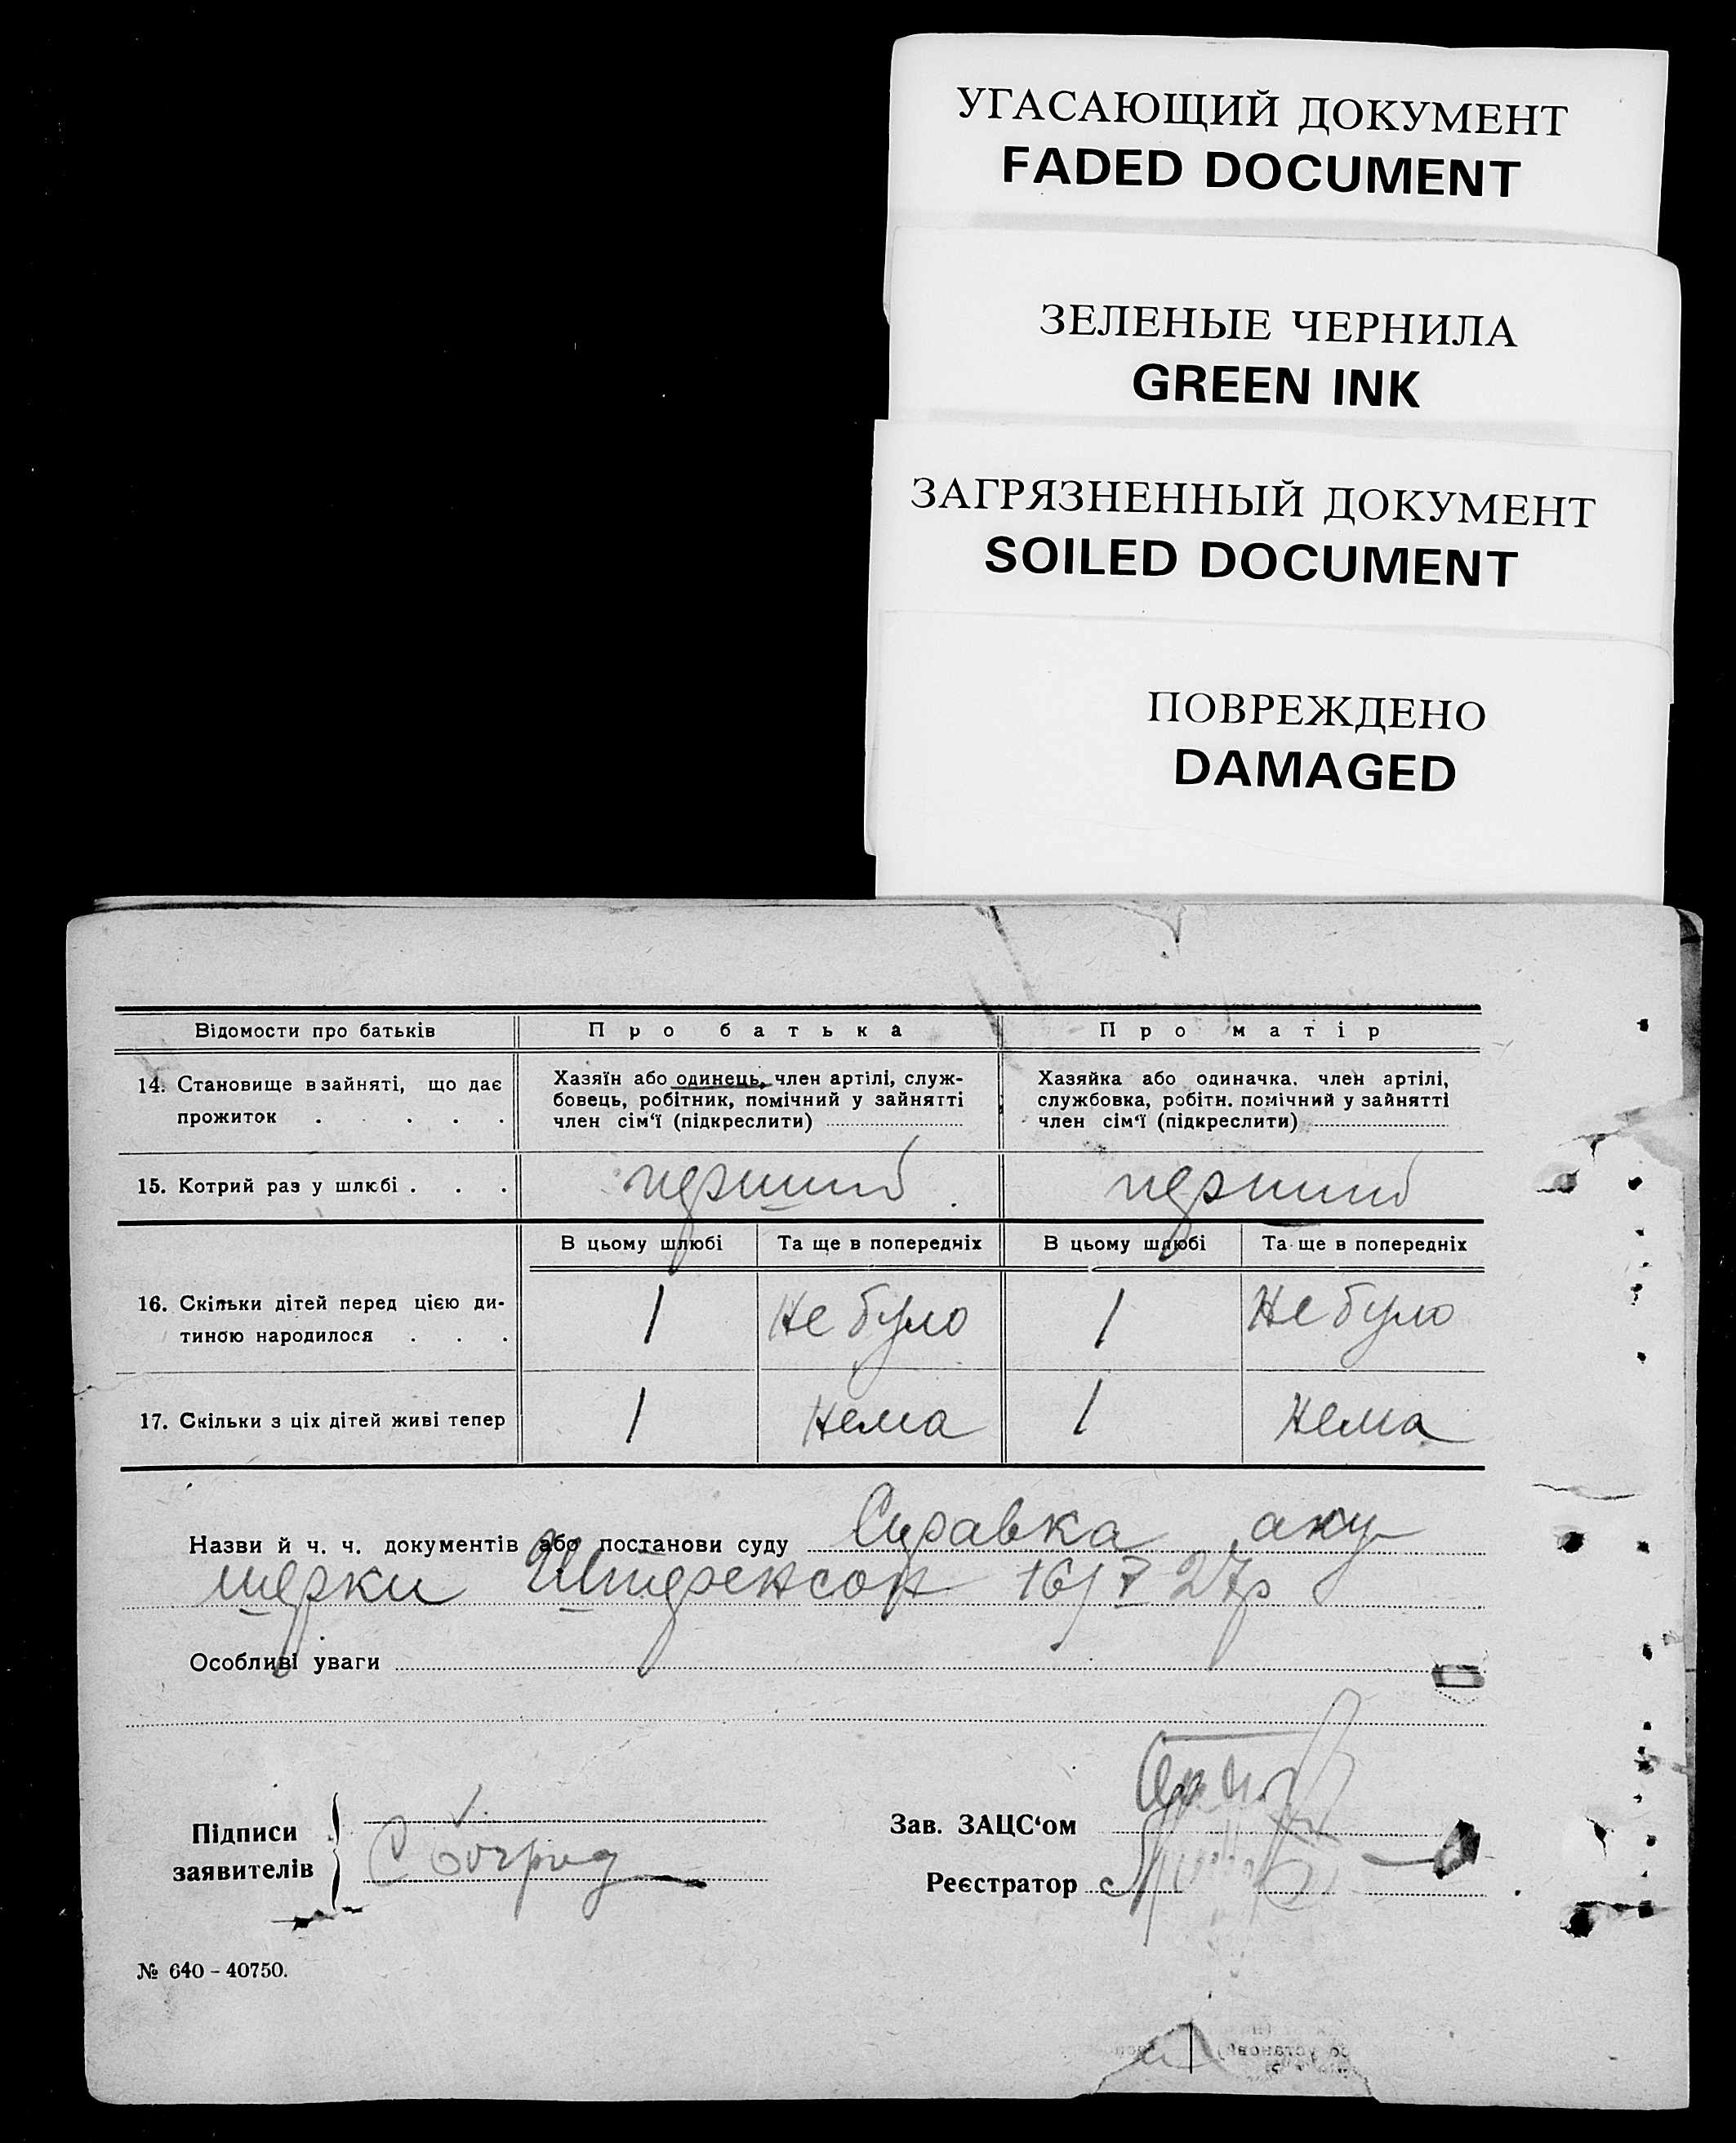 УГАСАЮЩИЙ ДОКУМЕНТ
FADED DOCUMENT
ЗЕЛЕНЫЕ ЧЕРНИЛА
GREEN INK
ЗАГРЯЗНЕННЫЙ ДОКУМЕНТ
SOILED DOCUMENT
ПОВРЕЖДЕНО
DAMAGED
Відомости про батьків Про батька Про матір
14. Становище в зайняті, що дає
прожиток . . . . .
Хазяїн або одинець, член артілі, служ-
бовець, робітник, помічний у зайнятті
член сім‘ї (підкреслити)
Хазяйка або одиначка. член артілі,
службовка, робітн. помічний у зайнятті
член сім‘ї (підкреслити)
15. Котрий раз у шлюбі . . . перший перший
В цьому шлюбі Та ще в попередніх В цьому шлюбі Та ще в попередніх
16. Скільки дітей перед цією ди-
тиною народилося . . . 1 Не було 1 Не було
17. Скільки з ціх дітей живі тепер 1 Нема 1 Нема
Назви й ч. ч. документів або постанови суду Справка аку
шерки 16/ 27р
Особливі уваги
Підписи
заявителів
Зав. ЗАЦС‘ом
Реєстратор
№ 640 – 40750.